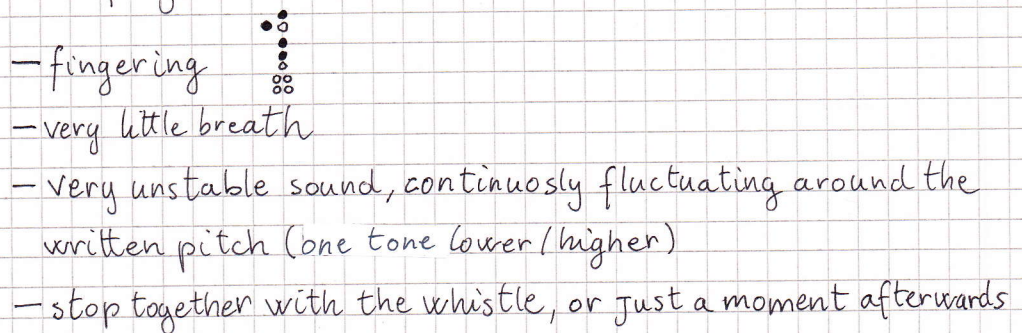 - fingering
- very little breath
- very unstable sound, continuosly fluctuating around the
written pitch (one tone lower/higher)
- stop together with the whistle, or just a moment afterwards